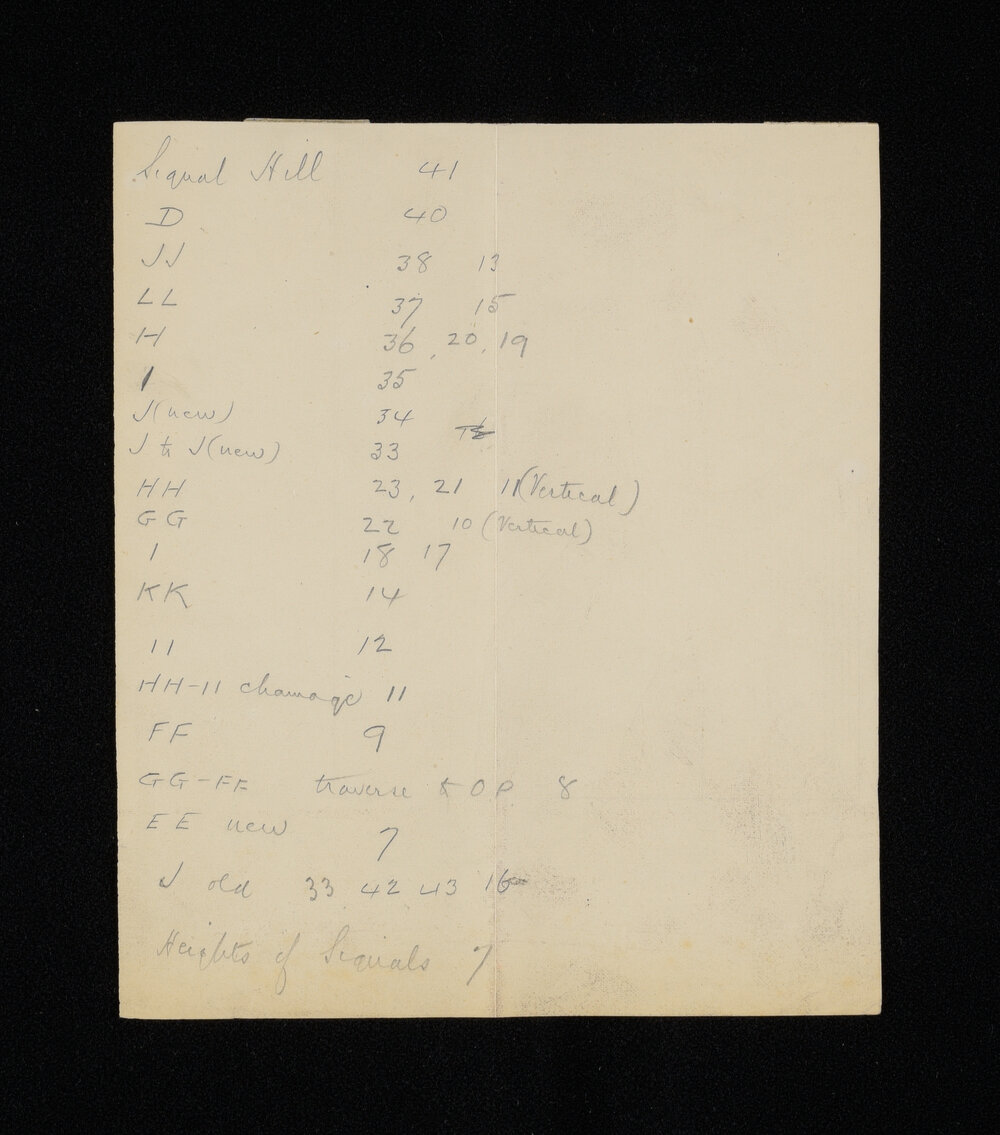 Signal Hill 41
D 40
JJ 38 13
LL 37 15
H 36, 20, 19
I 35
J (new) 34
J to J (new) 33
HH 23, 21 11 (Vertical)
GG 22 10 (Vertical)
I 18 17
KK 14
II 12
HH-II chainage 11
FF 9
GG-FF traverse & O P 8
EE new 7
J old 33 42 43 16
Heights of Signals 7